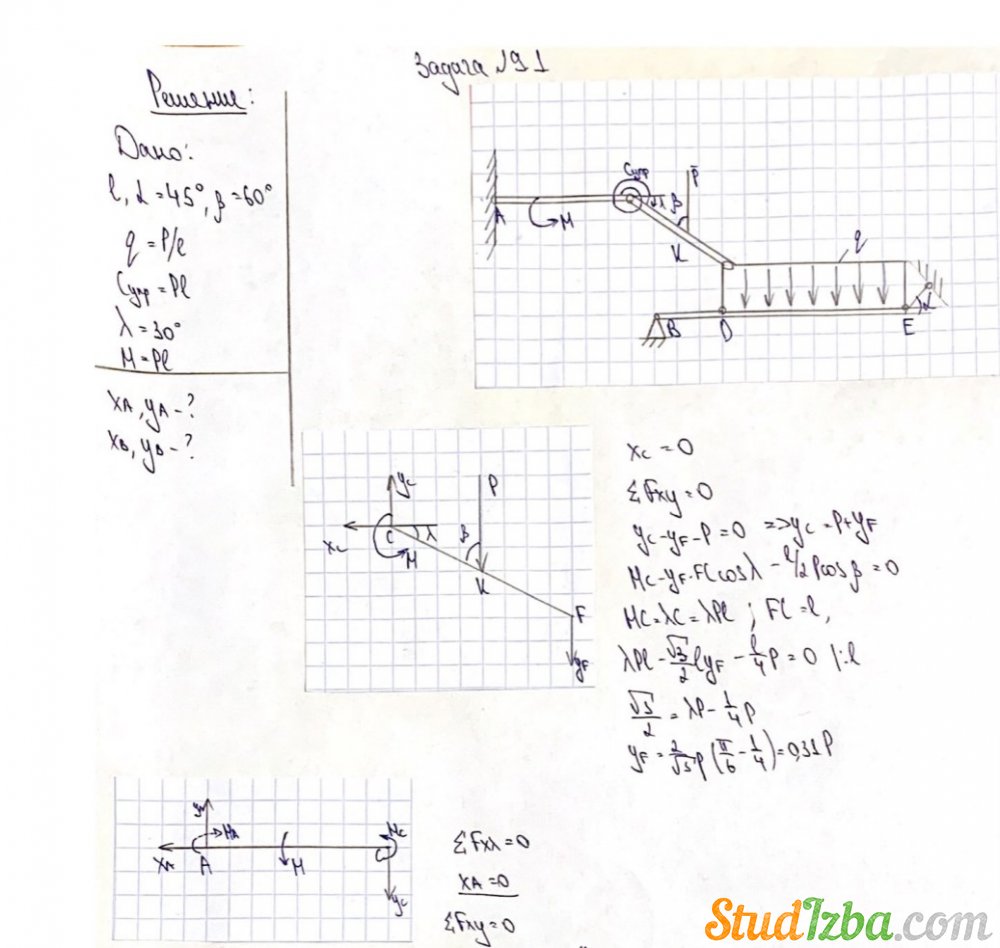 Задача №91
Решение:
Дано:
l, α=45°, β=60°
q = P/l
Cупр = Pl
λ = 30°
M = Pl
XA, YA - ?
XB, YB - ?
Cупр
P
A
M
λ
β
K
q
B
D
E
α
yc
P
xc
C
λ
β
M
K
F
yF
xc = 0
ΣFxy = 0
yc - yF - P = 0 => yc = P + yF
Mc - yF·FC cosλ - l/2 P cosβ = 0
Mc = λC = λPl ; FC = l,
λPl - √3/2 l yF - l/4 P = 0 |:l
√3/2 = λP - 1/4 P
yF = 2/√3 P (π/6 - 1/4) = 0,31P
MA
Mc
XA
A
M
yc
ΣFxλ = 0
XA = 0
ΣFxy = 0
StudIzba.com